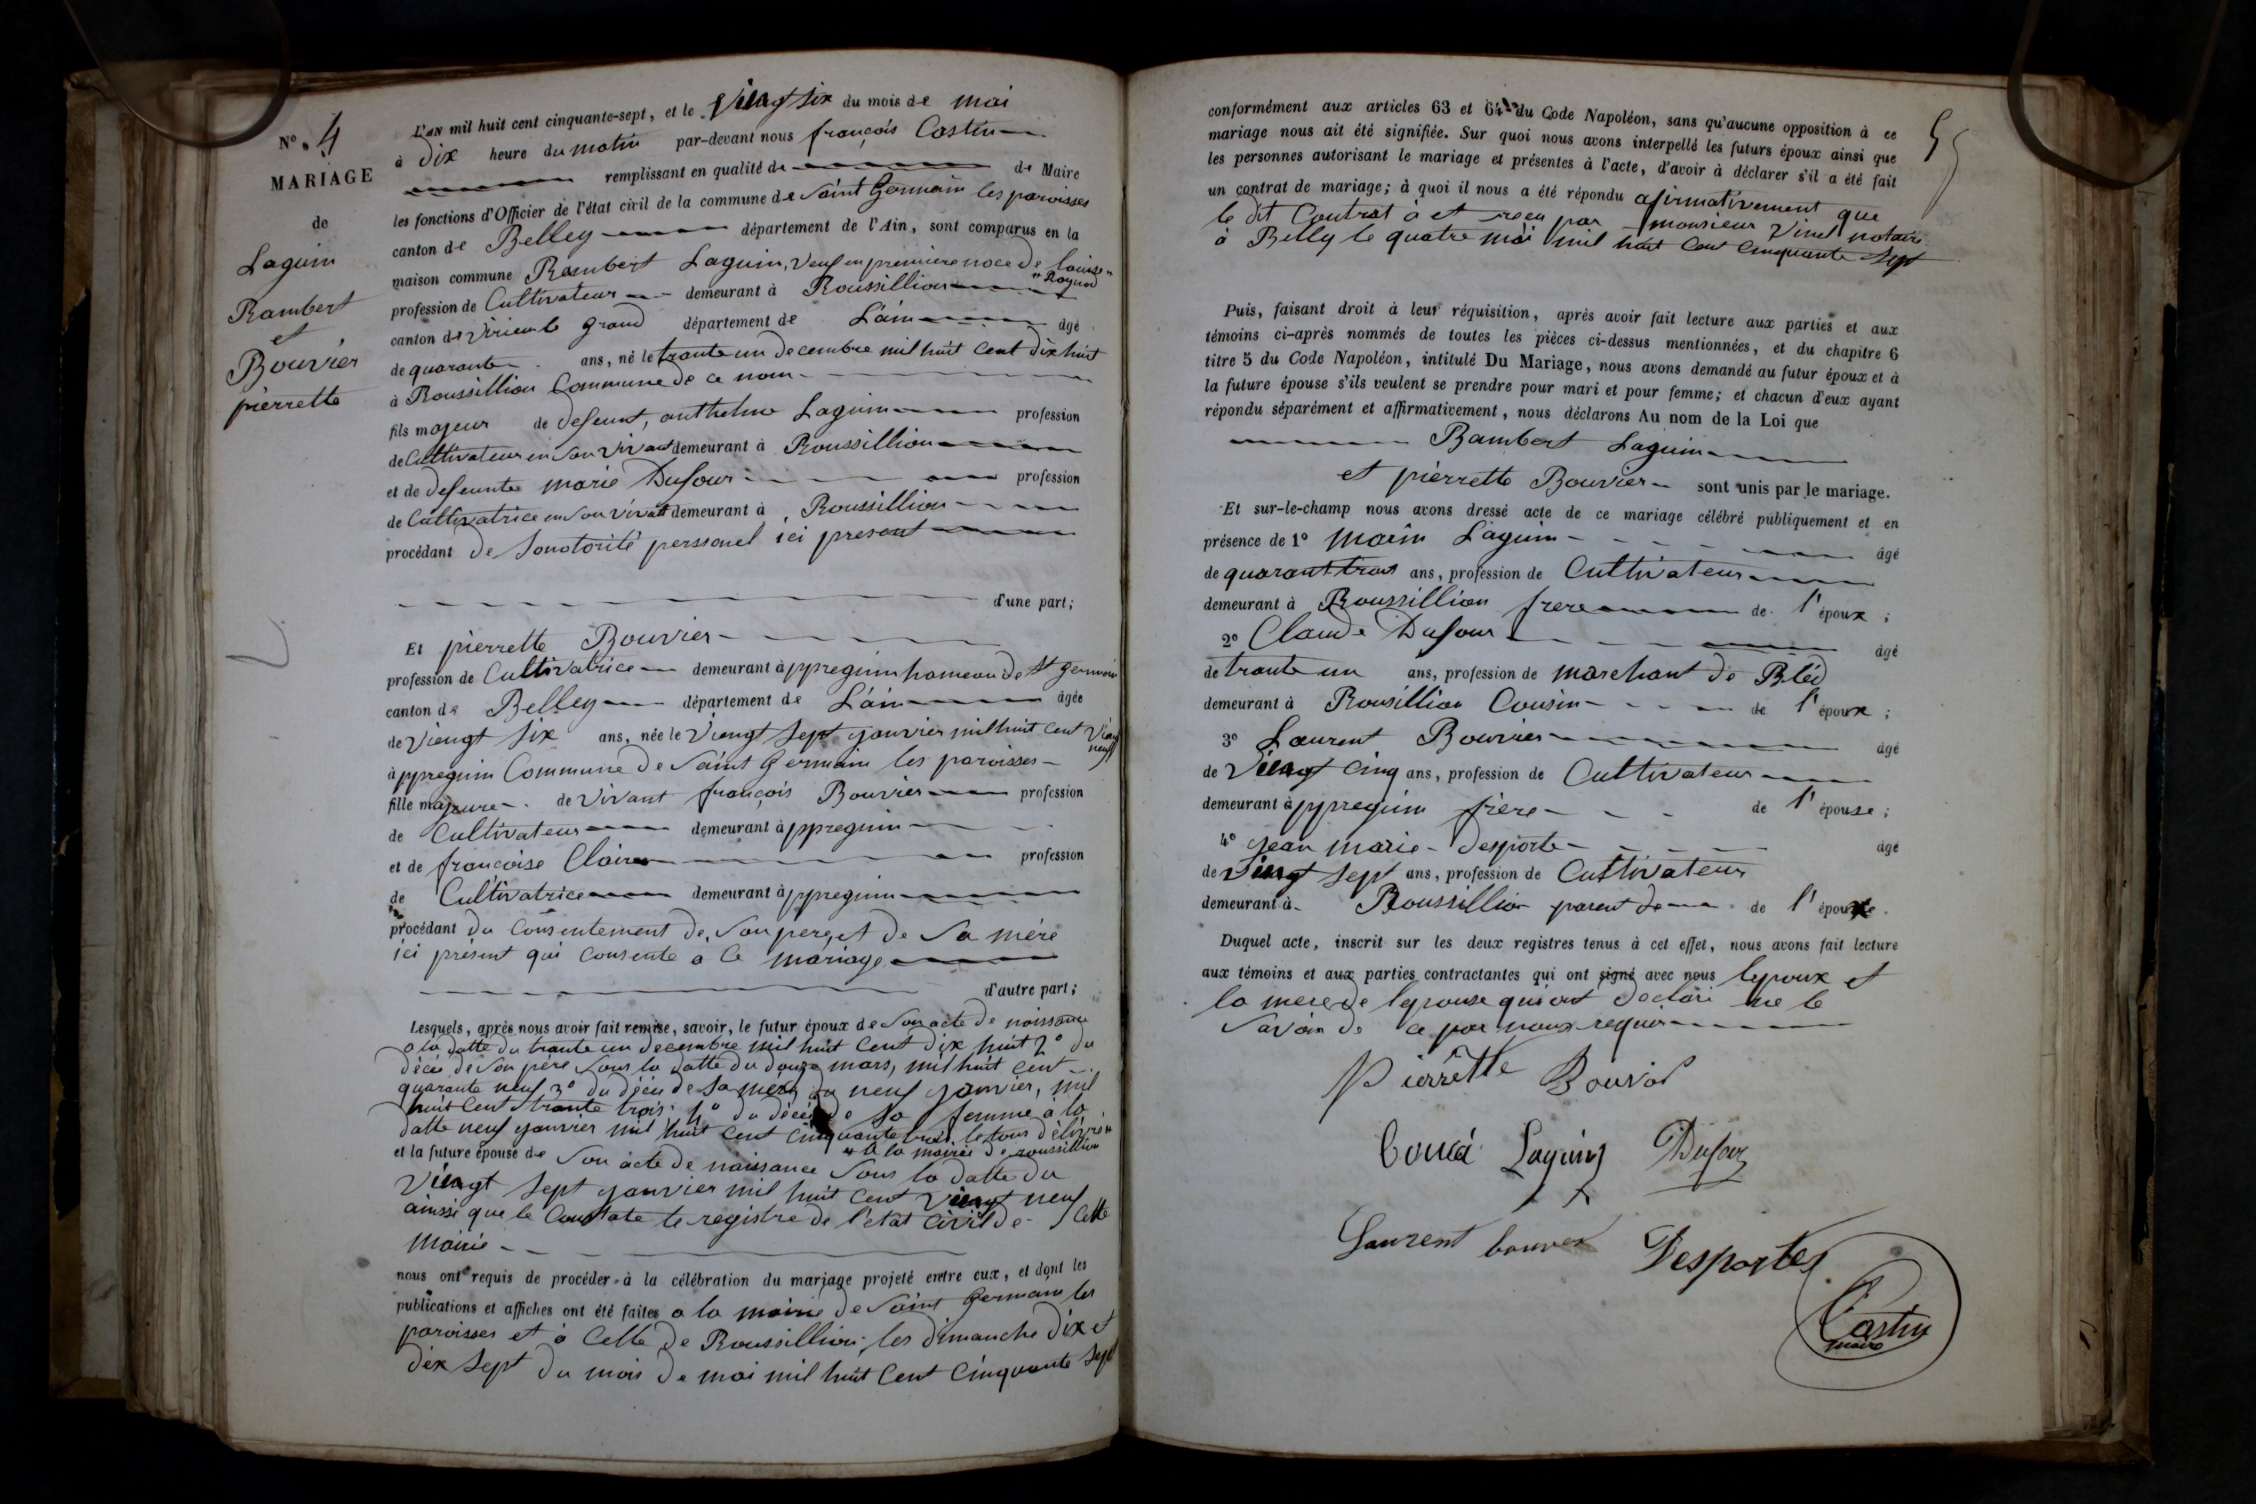 N° 4
MARIAGE
de
Laguin
Rambert
et
Bouvier
pierrette
L'AN mil huit cent cinquante-sept, et le viengt six du mois de mai
à dix heure du matin par-devant nous françois Castin
remplissant en qualité de de Maire
les fonctions d'Officier de l'état civil de la commune de Saint Germain les paroisses
canton de Belley département de l'Ain, sont comparus en la
maison commune Rambert Laguin, Veuf en première noce de louise
profession de Cultivateur demeurant à Roussillion
canton de virieu le grand département de L'ain âgé
de quarante ans, né le trante un decembre mil huit cent dix huit
à Roussillion Commune de ce nom
fils majeur de defeunt, anthelme Laguin profession
de Cultivateur en son vivant demeurant à Roussillion
et de defeunte marie Dufour profession
de Cultivatrice en son vivant demeurant à Roussillion
procédant de sonotorité perssonel ici present
d'une part;
Et pierrette Bouvier
profession de Cultivatrice demeurant à ppregnin hameau de St germain
canton de Belley département de L'ain âgée
de viengt six ans, née le viengt sept janvier mil huit cent vieng
neuf
à ppregnin Commune de Saint Germain les paroisses
fille majeure de vivant françois Bouvier profession
de Cultivateur demeurant à ppregnin
et de françoise Claire profession
de Cultivatrice demeurant à ppregnin
procédant du consentement de son pere, et de Sa mére
ici présent qui consente a ce mariage
d'autre part;
Lesquels, après nous avoir fait remise, savoir, le futur époux de son acte de naissance
a la datte du trante un decembre mil huit cent dix huit 2° du
décés de son pére sous la datte du douze mars, mil huit cent
quarante neuf 3° du décés de sa mére du neuf janvier, mil
huit cent trante trois 4° du décés de sa femme à la
datte neuf janvier mil huit cent cinquante trois le tous délivré
a la mairie de roussillion
et la future épouse de son acte de naissance sous la datte du
viengt sept janvier mil huit cent viengt neuf
ainssi que le constate le registre de l'état civil de cette
mairie
nous ont requis de procéder à la célébration du mariage projeté entre eux, et dont les
publications et affiches ont été faites a la mairie de Saint Germain les
paroisses et à celle de Roussillion, les dimanche dix et
dix sept du mois de mai mil huit cent cinquante sept
conformément aux articles 63 et 64 du Code Napoléon, sans qu'aucune opposition à ce
mariage nous ait été signifiée. Sur quoi nous avons interpellé les futurs époux ainsi que
les personnes autorisant le mariage et présentes à l'acte, d'avoir à déclarer s'il a été fait
un contrat de mariage; à quoi il nous a été répondu afirmativement que
le dit Contrat à et reçu par monsieur Vinel notaire
à Belly le quatre mai mil huit cent cinquante sept
Puis, faisant droit à leur réquisition, après avoir fait lecture aux parties et aux
témoins ci-après nommés de toutes les pièces ci-dessus mentionnées, et du chapitre 6
titre 5 du Code Napoléon, intitulé Du Mariage, nous avons demandé au futur époux et à
la future épouse s'ils veulent se prendre pour mari et pour femme; et chacun d'eux ayant
répondu séparément et affirmativement, nous déclarons Au nom de la Loi que
Rambert Laguin
et pierrette Bouvier sont unis par le mariage.
Et sur-le-champ nous avons dressé acte de ce mariage célébré publiquement et en
présence de 1° Laguin âgé
de quarant trois ans, profession de Cultivateur
demeurant à Roussillion frere de l'époux;
2° Claude Dufour âgé
de trante un ans, profession de marchant de Bléd
demeurant à Rousillion Cousin de l'époux;
3° Laurent Bouvier âgé
de Viengt cinq ans, profession de Cultivateur
demeurant à ppregnin frère de l'épouse;
4° jean marie Desporte âgé
de Viengt sept ans, profession de Cultivateur
demeurant à Roussillion parent de de l'époux.
Duquel acte, inscrit sur les deux registres tenus à cet effet, nous avons fait lecture
aux témoins et aux parties contractantes qui ont signé avec nous lepoux et
la mere de lepouse qui ont déclaré ne le
savoir de ce par nous requis
Pierrette Bouvié
Laguin Dufour
Laurent bouvier Desportes
Castin
maire